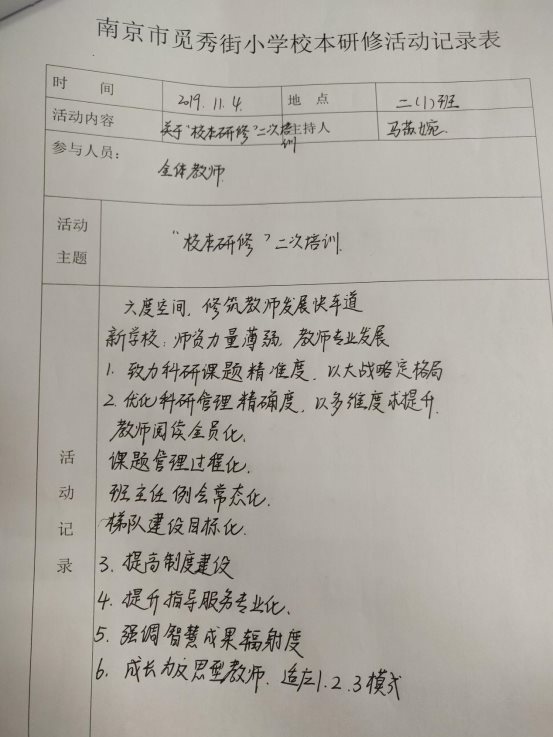 南京市觅秀街小学校本研修活动记录表
时 间 2019.11.4. 地 点 二(1)班
活动内容 关于"校本研修"二次培训 主持人 马茹婉.
参与人员:
全体教师.
活动主题 "校本研修"二次培训.
活动记录
六度空间,修筑教师发展快车道
新学校:师资力量薄弱,教师专业发展
1. 致力科研课题精准度,以大战略定格局
2. 优化科研管理精确度,以多维度求提升.
教师阅读全员化.
课题管理过程化.
班主任例会常态化.
梯队建设目标化.
3. 提高制度建设
4. 提升指导服务专业化.
5. 强调智慧成果辐射度
6. 成长为反思型教师.适应1.2.3模式